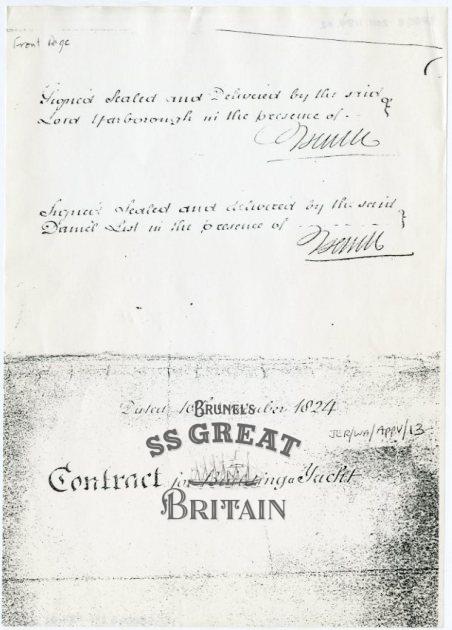 Front Page
Signed Sealed and Delivered by the said
Lord Yarborough in the presence of
Signed Sealed and delivered by the said
Daniel List in the presence of
Dated 10 1824
BRUNEL'S
SS GREAT
JER/WA/APPV/13
Contract for Building a Yacht
BRITAIN